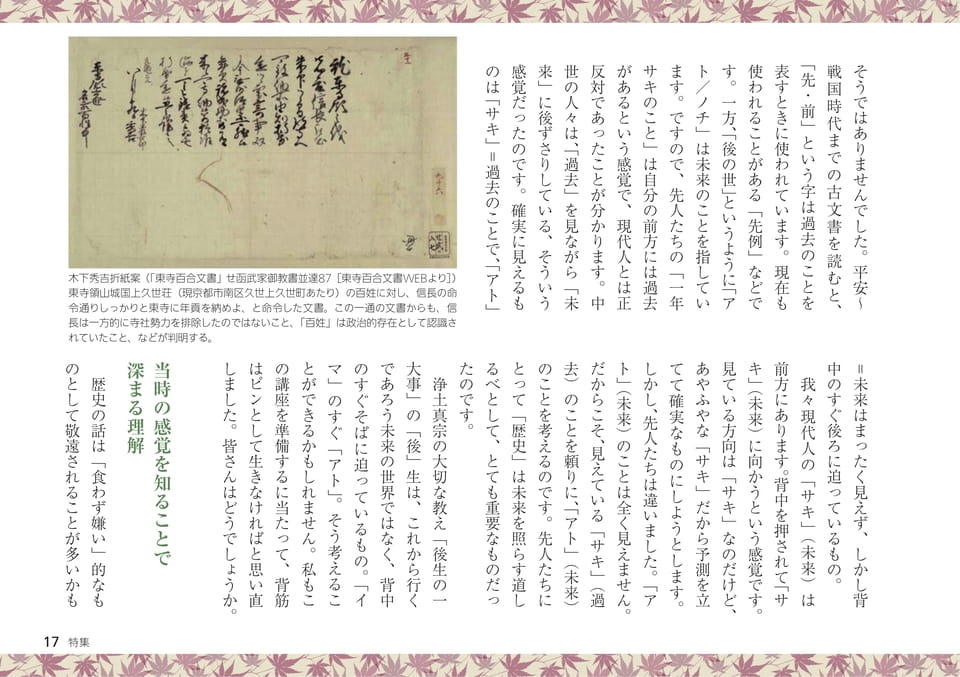 そうではありませんでした。平安〜
戦国時代までの古文書を読むと、
「先・前」という字は過去のことを
表すときに使われています。現在も
使われることがある「先例」などで
す。一方、「後の世」というように「ア
ト／ノチ」は未来のことを指してい
ます。ですので、先人たちの「一年
サキのこと」は自分の前方には過去
があるという感覚で、現代人とは正
反対であったことが分かります。中
世の人々は、「過去」を見ながら「未
来」に後ずさりしている、そういう
感覚だったのです。確実に見えるも
のは「サキ」＝過去のことで、「アト」
木下秀吉折紙案（「東寺百合文書」せ函武家御教書並達87［東寺百合文書WEBより］）
東寺領山城国上久世荘（現京都市南区久世上久世町あたり）の百姓に対し、信長の命
令通りしっかりと東寺に年貢を納めよ、と命令した文書。この一通の文書からも、信
長は一方的に寺社勢力を排除したのではないこと、「百姓」は政治的存在として認識さ
れていたこと、などが判明する。
＝未来はまったく見えず、しかし背
中のすぐ後ろに迫っているもの。
我々現代人の「サキ」（未来）は
前方にあります。背中を押されて「サ
キ」（未来）に向かうという感覚です。
見ている方向は「サキ」なのだけど、
あやふやな「サキ」だから予測を立
てて確実なものにしようとします。
しかし、先人たちは違いました。「ア
ト」（未来）のことは全く見えません。
だからこそ、見えている「サキ」（過
去）のことを頼りに、「アト」（未来）
のことを考えるのです。先人たちに
とって「歴史」は未来を照らす道し
るべとして、とても重要なものだっ
たのです。
浄土真宗の大切な教え「後生の一
大事」の「後」生は、これから行く
であろう未来の世界ではなく、背中
のすぐそばに迫っているもの。「イ
マ」のすぐ「アト」。そう考えるこ
とができるかもしれません。私もこ
の講座を準備するに当たって、背筋
はピンとして生きなければと思い直
しました。皆さんはどうでしょうか。
当時の感覚を知ることで
深まる理解
歴史の話は「食わず嫌い」的なも
のとして敬遠されることが多いかも
17 特集